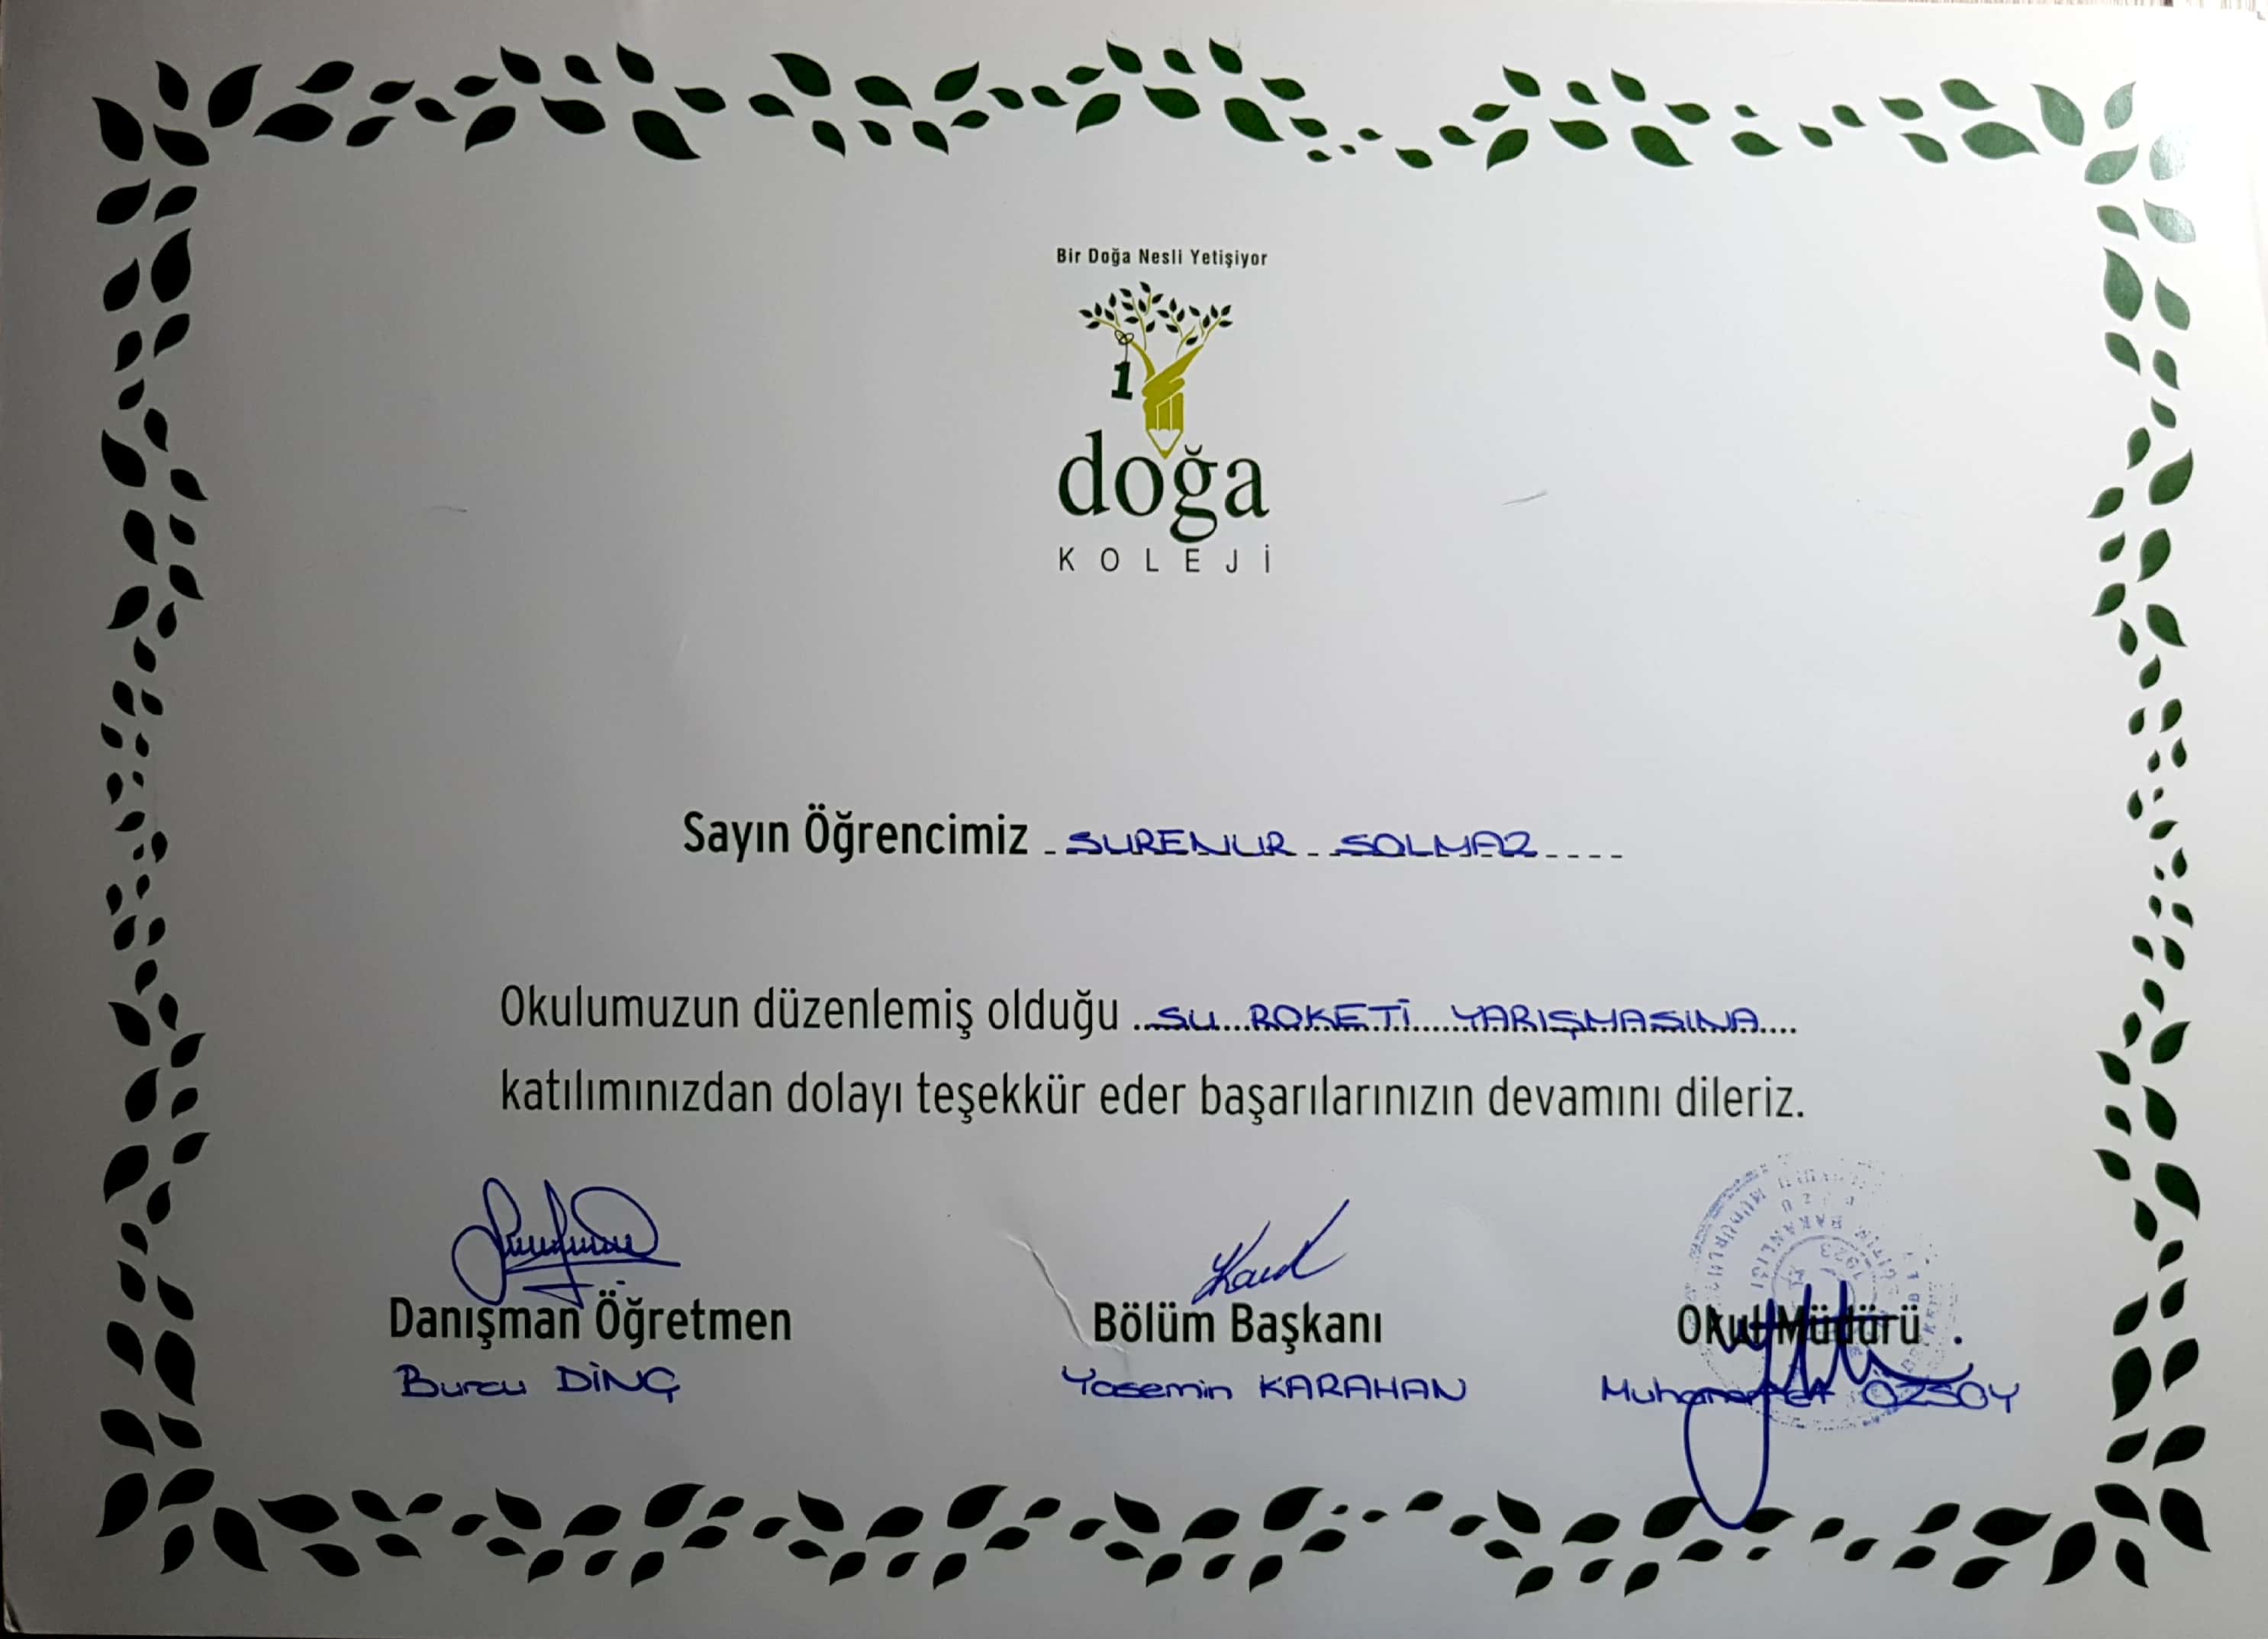 Bir Doğa Nesli Yetişiyor
1
doğa
KOLEJİ
Sayın Öğrencimiz SURENUR SOLMAZ
Okulumuzun düzenlemiş olduğu SU ROKETİ YARIŞMASINA
katılımınızdan dolayı teşekkür eder başarılarınızın devamını dileriz.
Danışman Öğretmen Bölüm Başkanı Okul Müdürü
Burcu DİNÇ Yasemin KARAHAN Muhammet ÖZSOY
1923